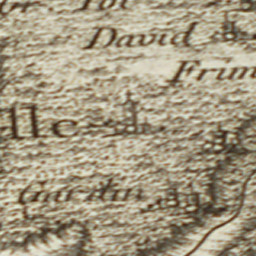 David
Frim
lle
Gardin